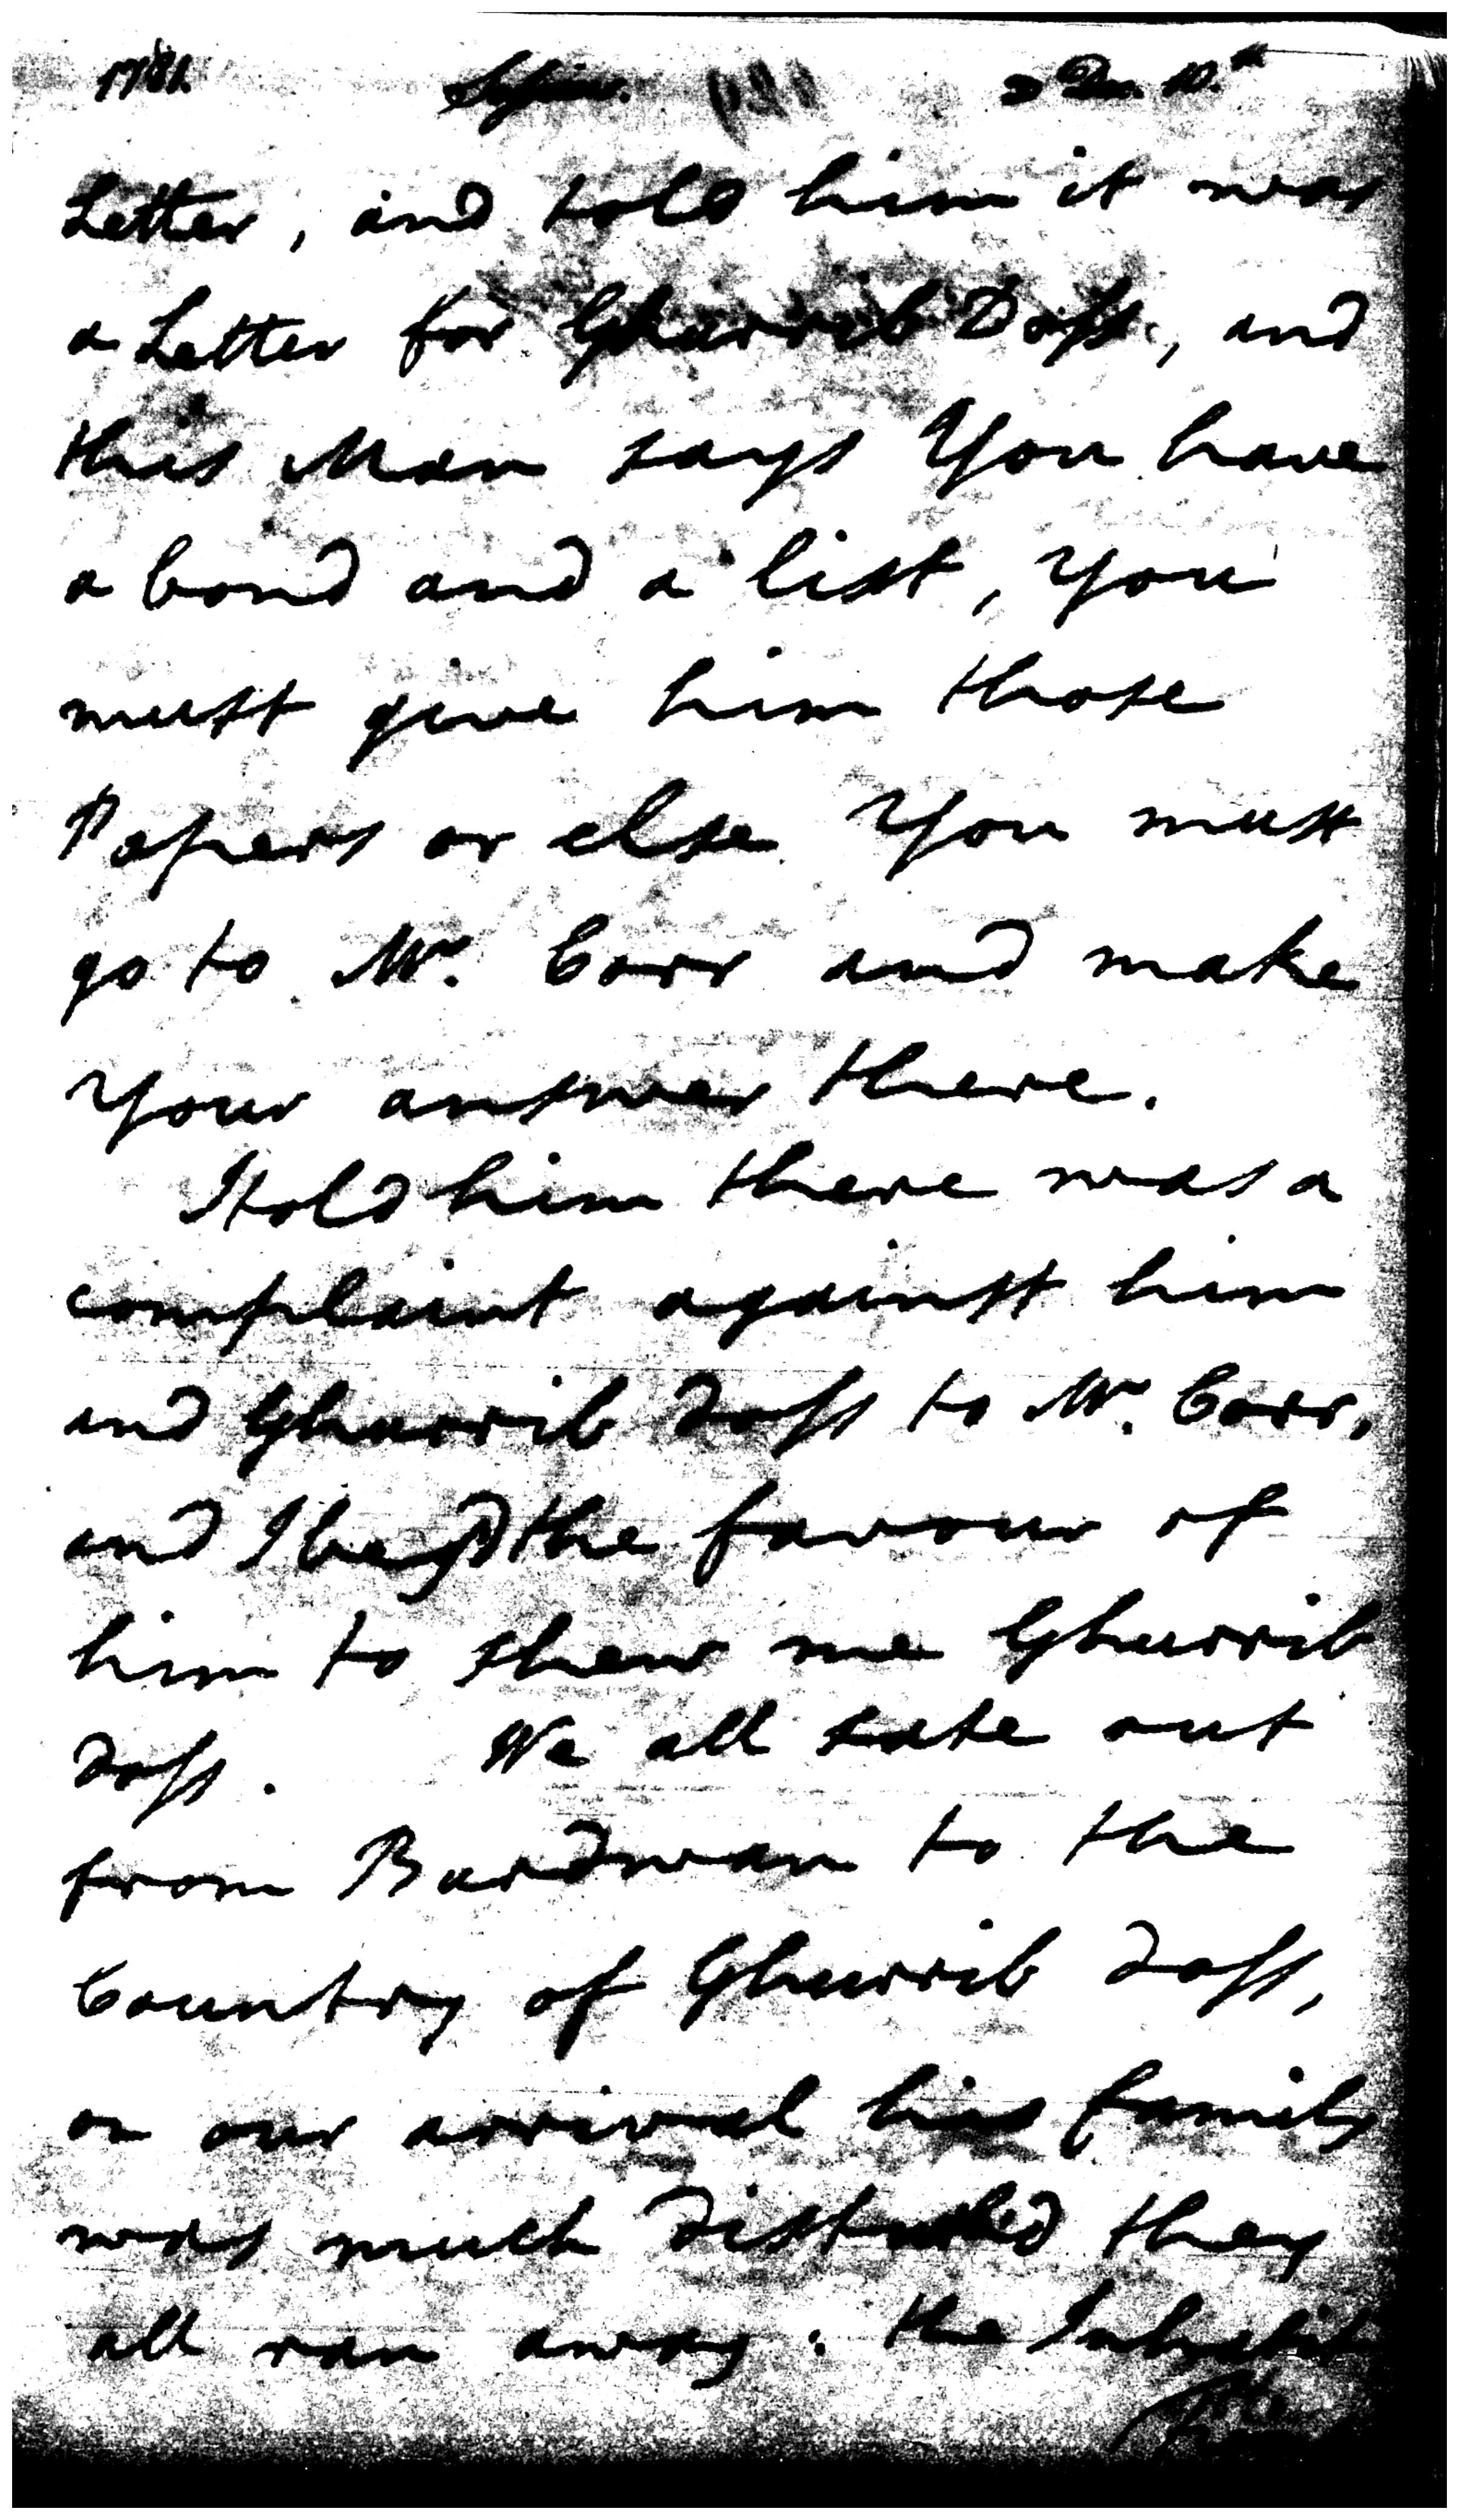 1781. Sessions. Dec. 10.th
Letter, and told him it was
a Letter for Ghurrib Doss, and
this Man says You have
a bond and a list, You
must give him those
Papers or else You must
go to Mr. Corr and make
Your answer there.
I told him there was a
complaint against him
and Ghurrib Doss to Mr. Corr,
and I beg'd the favour of
him to shew me Ghurrib
Doss. We all sate out
from Burdwan to the
Country of Ghurrib Doss,
on our arrival his family
was much disturbed they
all ran away: the Inhabit